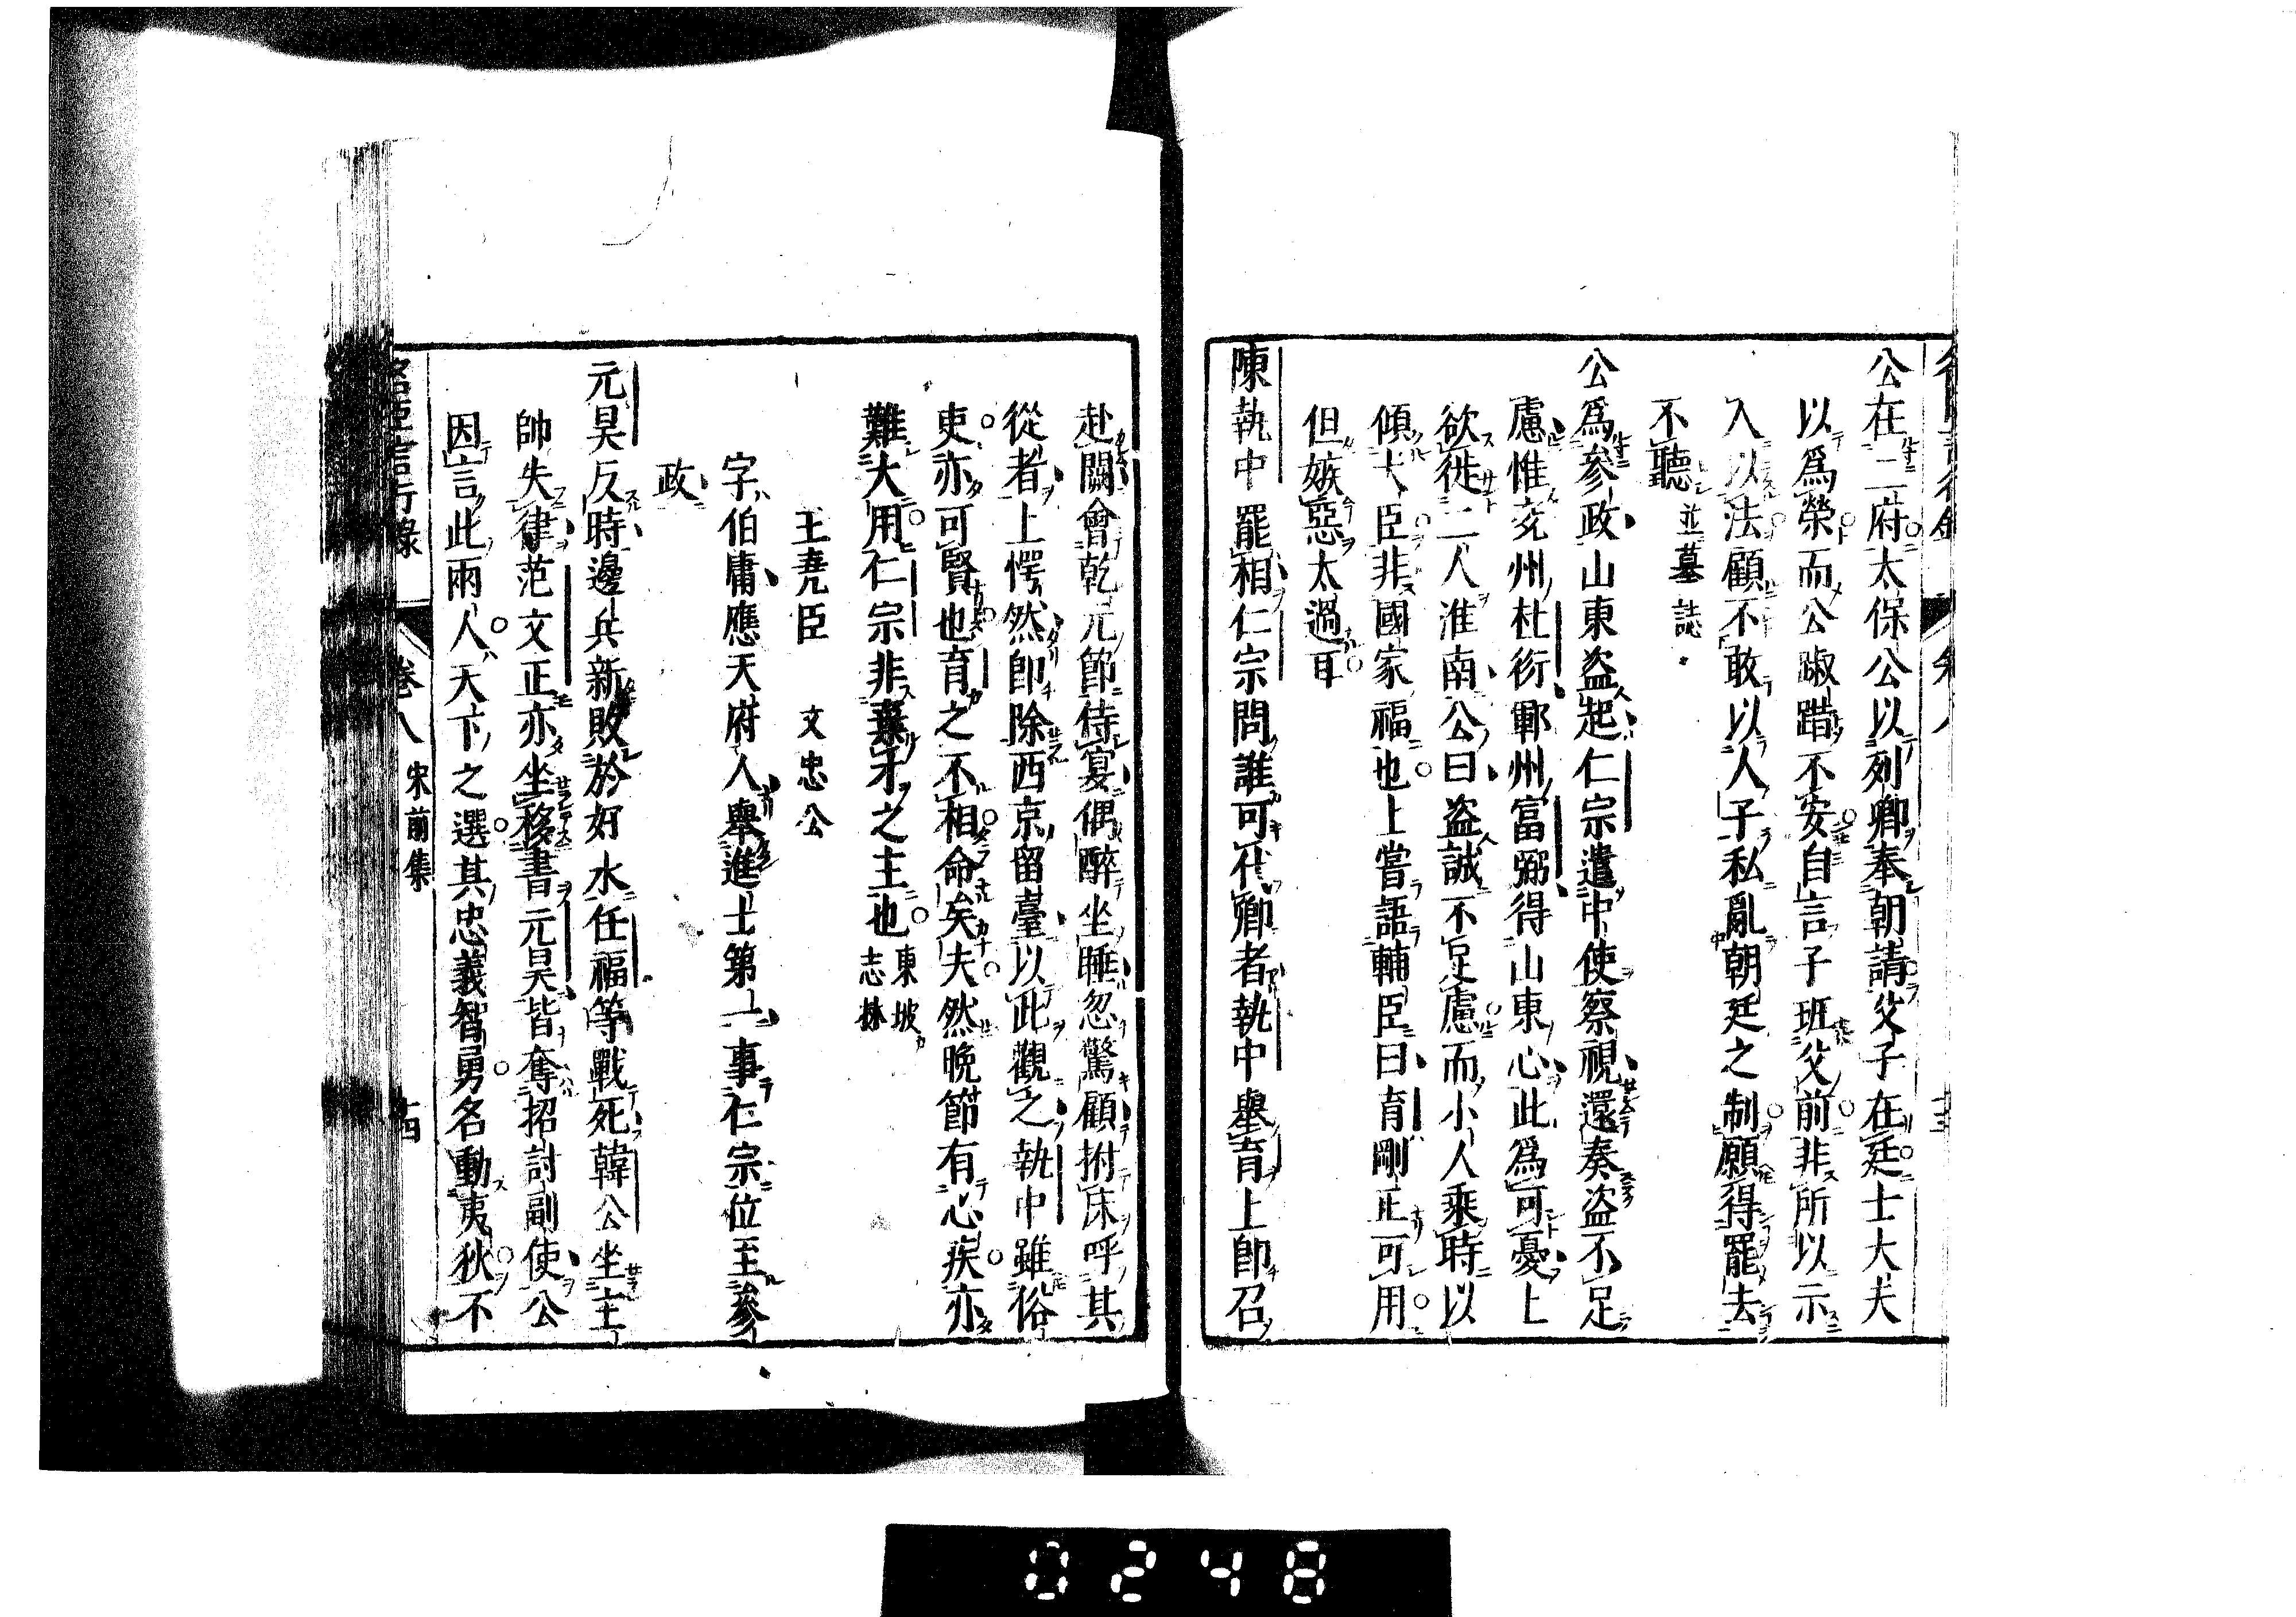 公在二府太保公以列卿奉朝請父子在廷士大夫
以爲榮而公踧踖不安自言子班父前非所以示
入以法顧不敢以人子私亂朝廷之制願得罷去
不聽並墓誌
公爲參政山東盗起仁宗遣中使察視還奏盗不足
慮惟兗州杜衍鄆州富弼得山東心此爲可憂上
欲徙二人淮南公曰盗誠不足慮而小人乘時以
傾大臣非國家福也上嘗語輔臣曰育剛正可用
但嫉惡太過耳
陳執中罷相仁宗問誰可代卿者執中舉育上即召
赴闕會乾元節侍宴偶醉坐睡忽驚顧拊床呼其
從者上愕然即除西京留臺以此觀之執中雖俗
吏亦可賢也育之不相命矣夫然晚節有心疾亦
難大用仁宗非棄才之主也東坡志林
王堯臣 文忠公
字伯庸應天府人舉進士第一事仁宗位至參
政
元昊反時邊兵新敗於好水任福等戰死韓公坐主
帥失律范文正亦坐移書元昊皆奪招討副使公
因言此兩人天下之選其忠義智勇名動夷狄不
名臣言行錄 卷八 宋前集 十四
0248